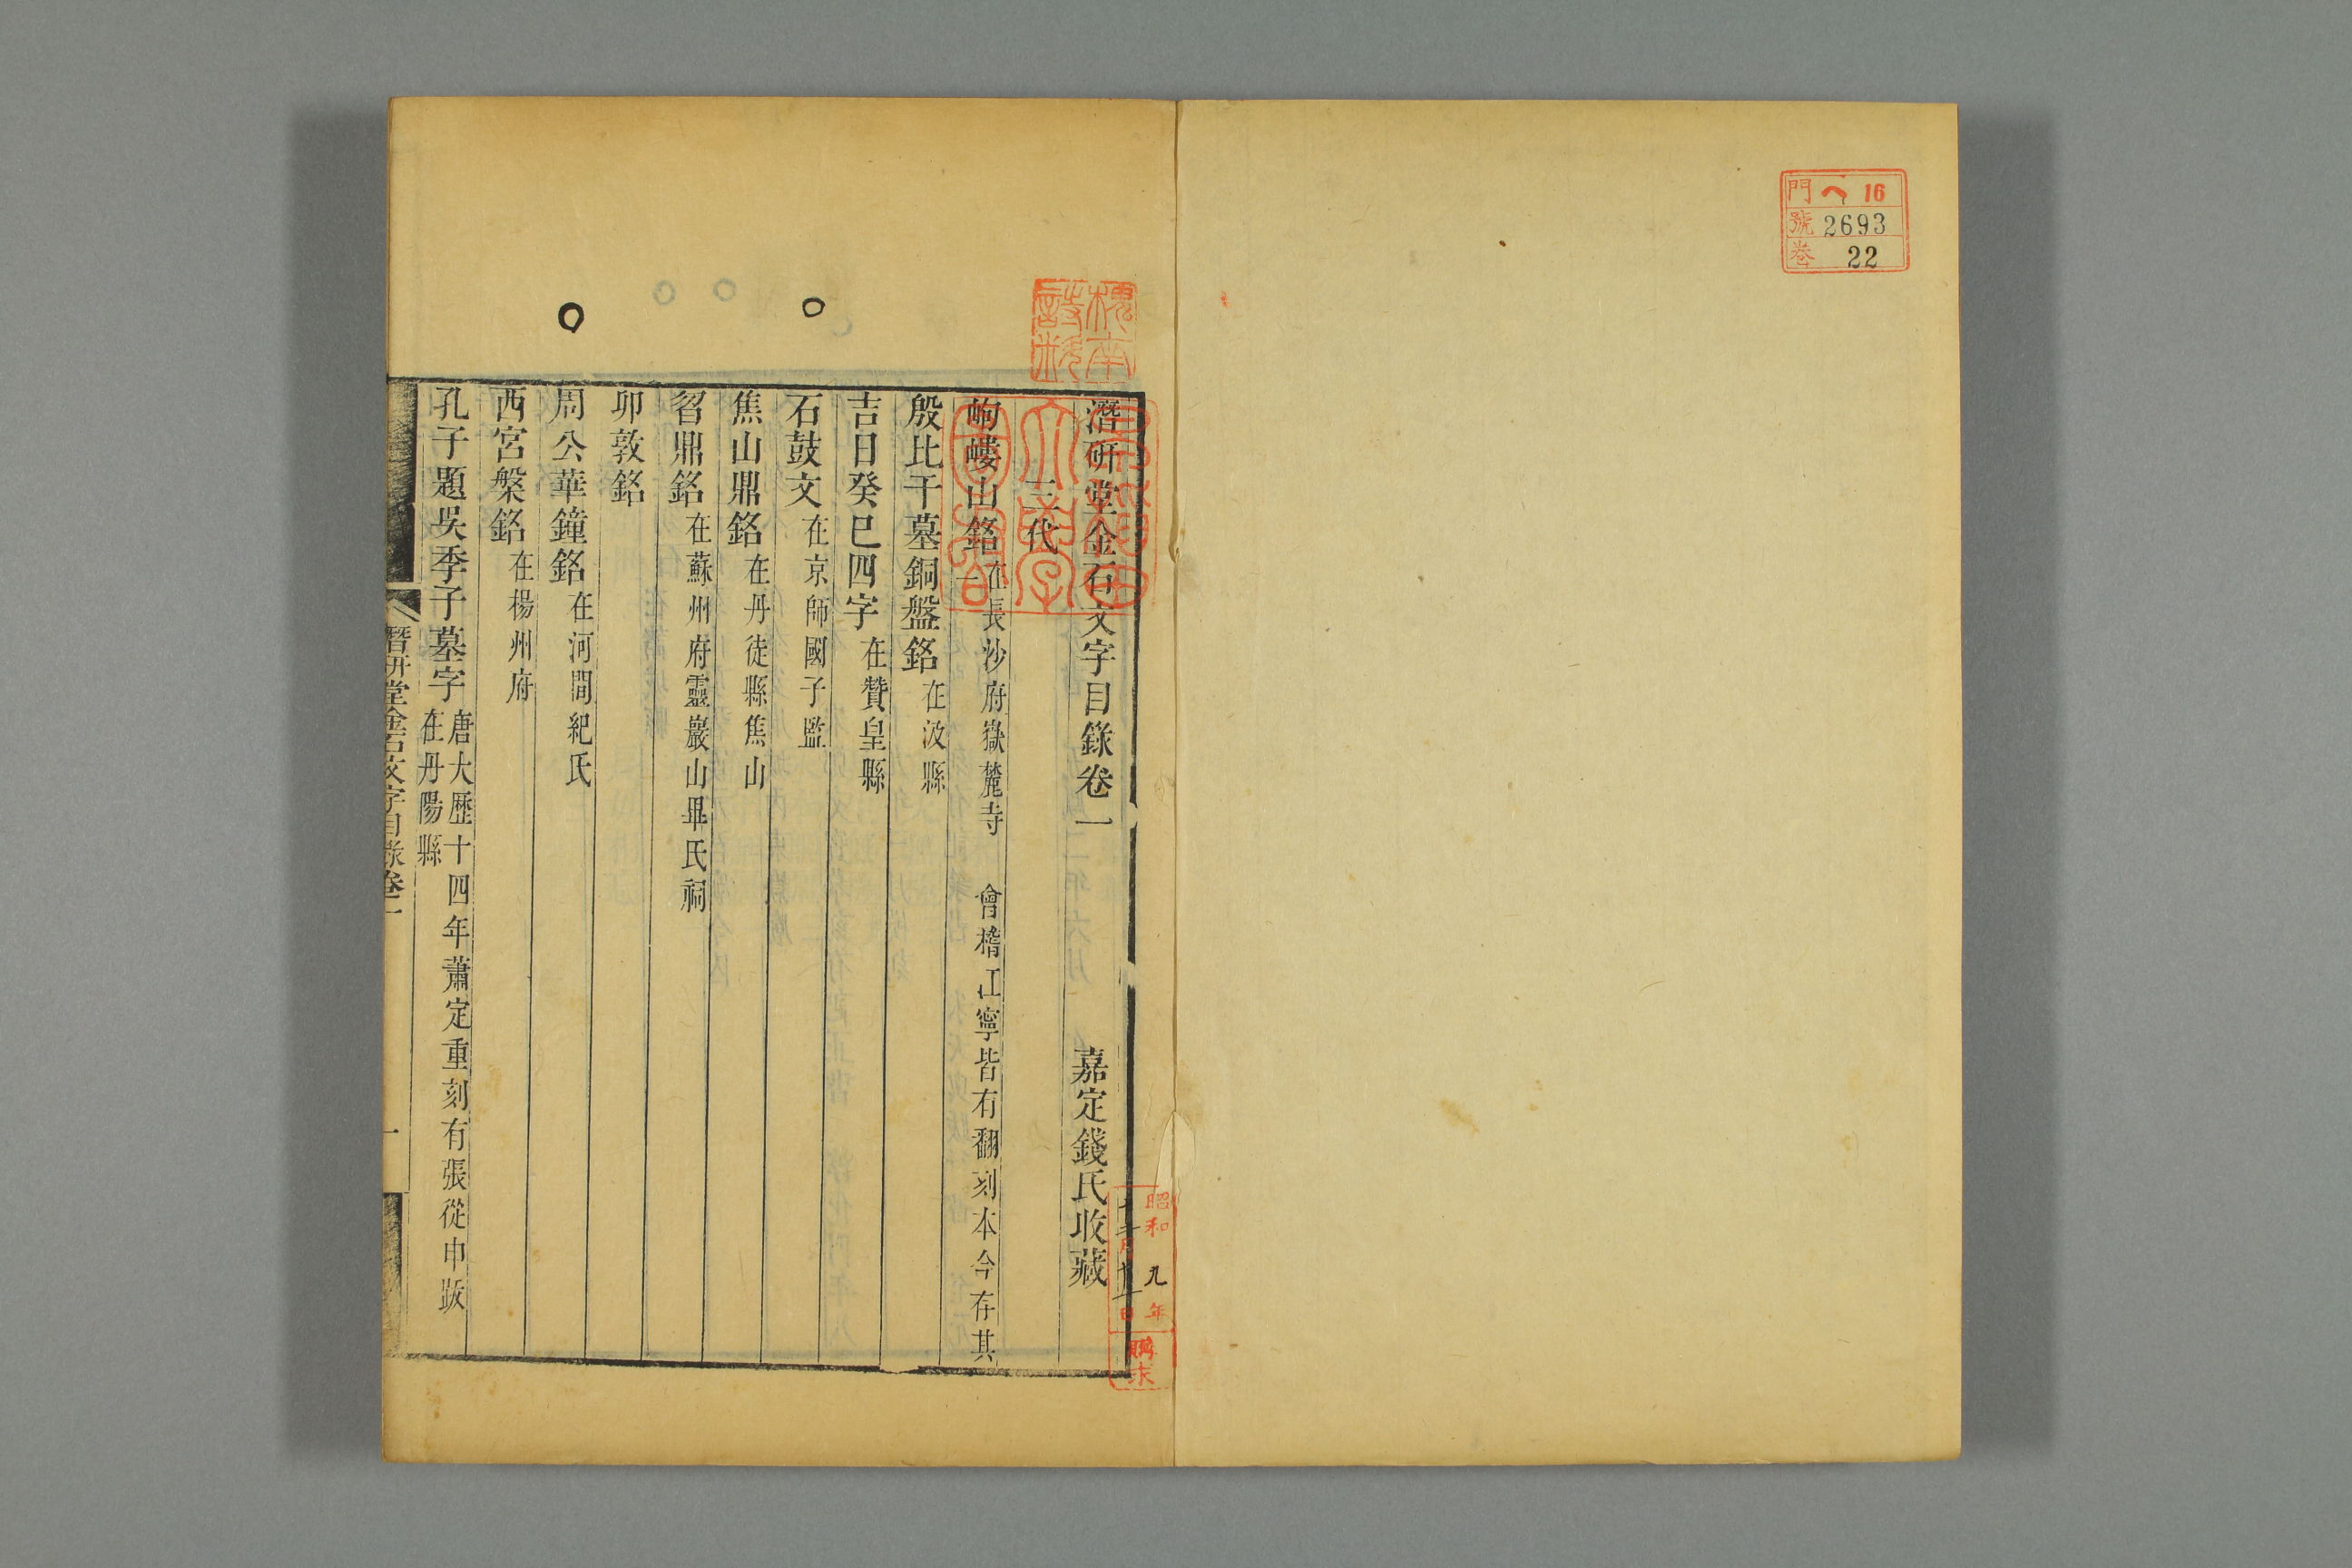 門 ヘ 16
號 2693
巻 22
潛研堂金石文字目錄卷一
嘉定錢氏收藏
三代
岣嶁山銘 在長沙府嶽麓寺 會稽江寧皆有翻刻本今存其一
殷比干墓銅盤銘 在汲縣
吉日癸巳四字 在贊皇縣
石鼓文 在京師國子監
焦山鼎銘 在丹徒縣焦山
曶鼎銘 在蘇州府靈巖山畢氏祠
卯敦銘
周公華鐘銘 在河間紀氏
西宮槃銘 在楊州府
孔子題吳季子墓字 唐大歷十四年蕭定重刻有張從申跋
在丹陽縣
潛研堂金石文字目錄卷一
一
早稲田
大學
圖書
昭和九年
月 日
購求